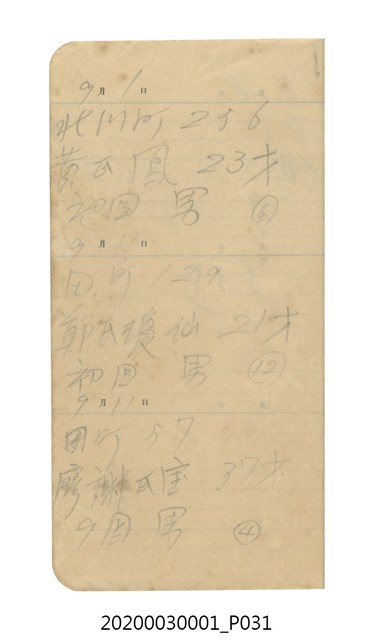 9月1日
北川町 256
黄氏鳳 23才
初回 男 ⑥
9月11日
田町 129
鄭氏瓊仙 21才
初回 男 ⑫
9月11日
田町 57
廖謝氏宝 37才
9回 男 ④
20200030001_P031